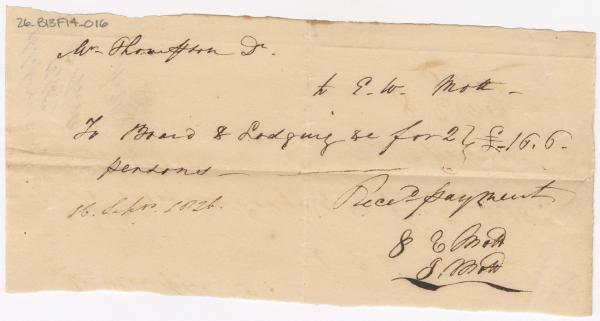 26-B13F14-016
Mr Thompson Dr.
to E. W. Mott -
To Board & Lodging &c for 2 } £-16.6-
persons -
16. Sepr. 1826.
Reced payment
E Mott
J. Mott